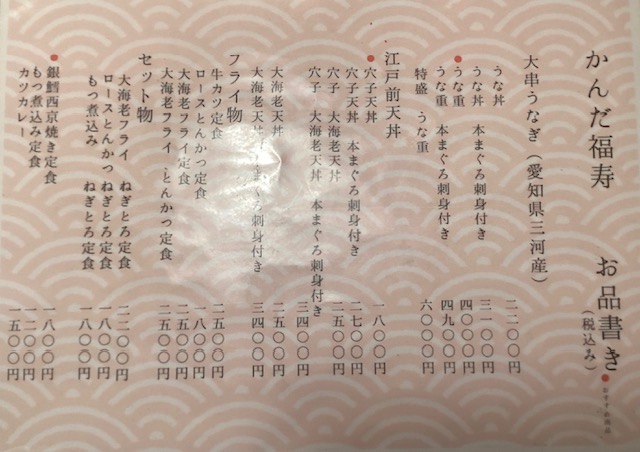 かんだ福寿 お品書き(税込み) ●おすすめ商品
大串うなぎ(愛知県三河産)
うな丼 二二〇〇円
うな丼 本まぐろ刺身付き 三一〇〇円
●うな重 四〇〇〇円
うな重 本まぐろ刺身付き 四九〇〇円
特盛 うな重 六〇〇〇円
江戸前天丼
●穴子天丼 一八〇〇円
穴子天丼 本まぐろ刺身付き 二七〇〇円
穴子 大海老天丼 二五〇〇円
穴子 大海老天丼 本まぐろ刺身付き 三四〇〇円
大海老天丼 二五〇〇円
大海老天丼 本まぐろ刺身付き 三四〇〇円
フライ物
牛カツ定食 二五〇〇円
ロースとんかつ定食 一八〇〇円
大海老フライ定食 二五〇〇円
大海老フライ とんかつ定食 二五〇〇円
セット物
大海老フライ ねぎとろ定食 二二〇〇円
ロースとんかつ ねぎとろ定食 一八〇〇円
もつ煮込み ねぎとろ定食 一八〇〇円
●銀鱈西京焼き定食 一八〇〇円
もつ煮込み定食 一二〇〇円
カツカレー 一五〇〇円